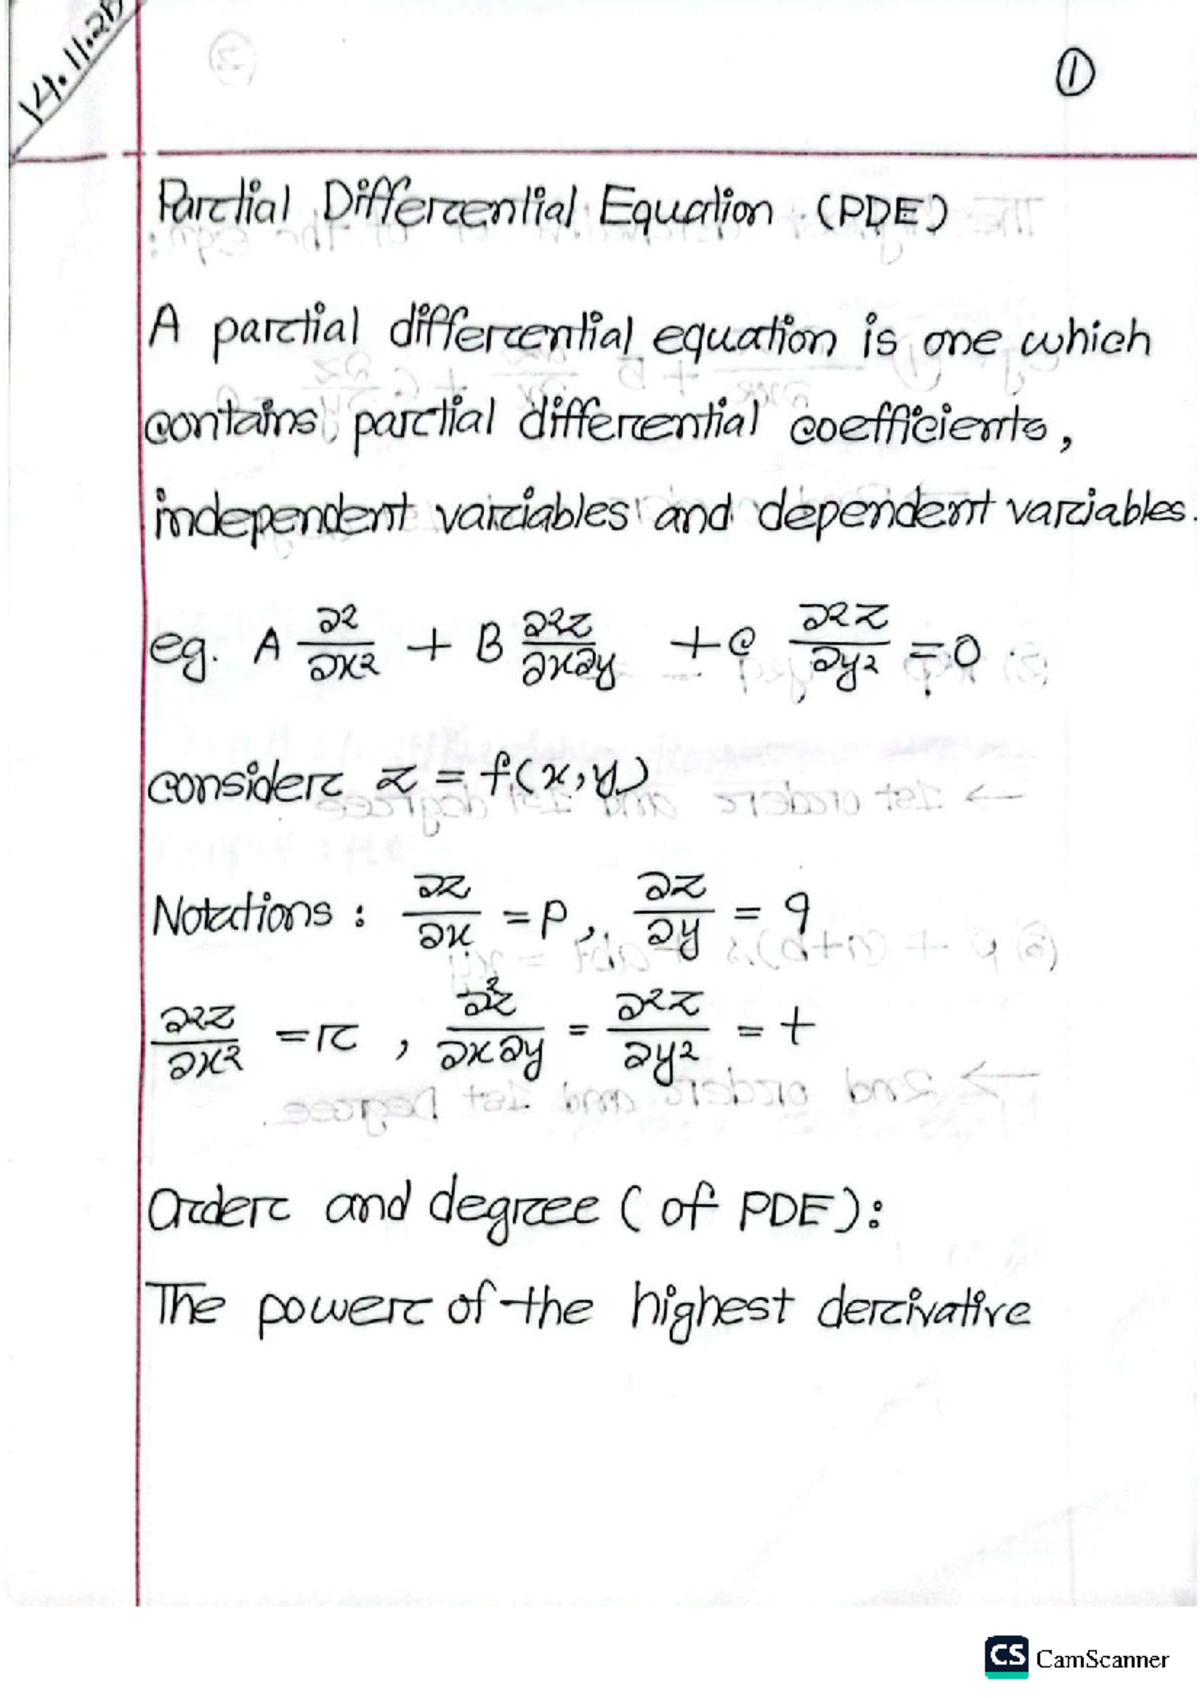 14.11.2
①
Partial Differential Equation (PDE)
A partial differential equation is one which
contains partial differential coefficients,
independent variables and dependent variables.
eg. A ∂2/∂x2 + B ∂2z/∂x∂y + C ∂2z/∂y2 = 0.
consider z = f(x,y)
Notations : ∂z/∂x = p, ∂z/∂y = q
∂2z/∂x2 = r , ∂2z/∂x∂y = ∂2z/∂y2 = t
Order and degree ( of PDE ):
The power of the highest derivative
CS CamScanner